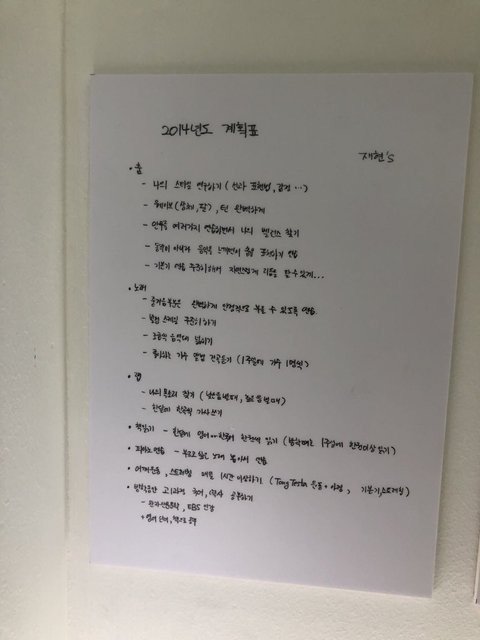 2014년도 계획표
재현's
• 춤
- 나의 스타일 연구하기 (선과 표현법, 감정 …)
- 웨이브 (상체, 팔), 턴 완벽하게
- 안무를 여러가지 연습하면서 나의 밸런스 찾기
- 음악의 이해와 음악을 느끼면서 춤을 표현하기 연습
- 기본기 연습 꾸준히 해서 자연스럽게 리듬을 탈 수 있게…
• 노래
- 즐거움 완벽하게 안정적으로 부를 수 있도록 연습.
- 발성 스케일 꾸준히 하기
- 조금씩 음역대 넓히기
- 좋아하는 가수 앨범 전곡듣기 (1주일에 가수 1명씩)
• 랩
- 나의 목소리 찾기 (낮은음역대, 높은음역대)
- 한달에 한곡씩 가사쓰기
• 책읽기 - 한달에 한권씩 읽기 (방학때는 1주일에 한권이상 읽기)
• 피아노 연습 - 부르고 싶은 노래 뽑아서 연습
• 어깨운동, 스트레칭 매일 1시간 이상하기 (Tony Testa 운동 + 아령, 기본기, 스트레칭)
• 방학동안 고1과정 국어, 역사 공부하기
- EBS 인강
+ 영어 단어, 책으로 공부